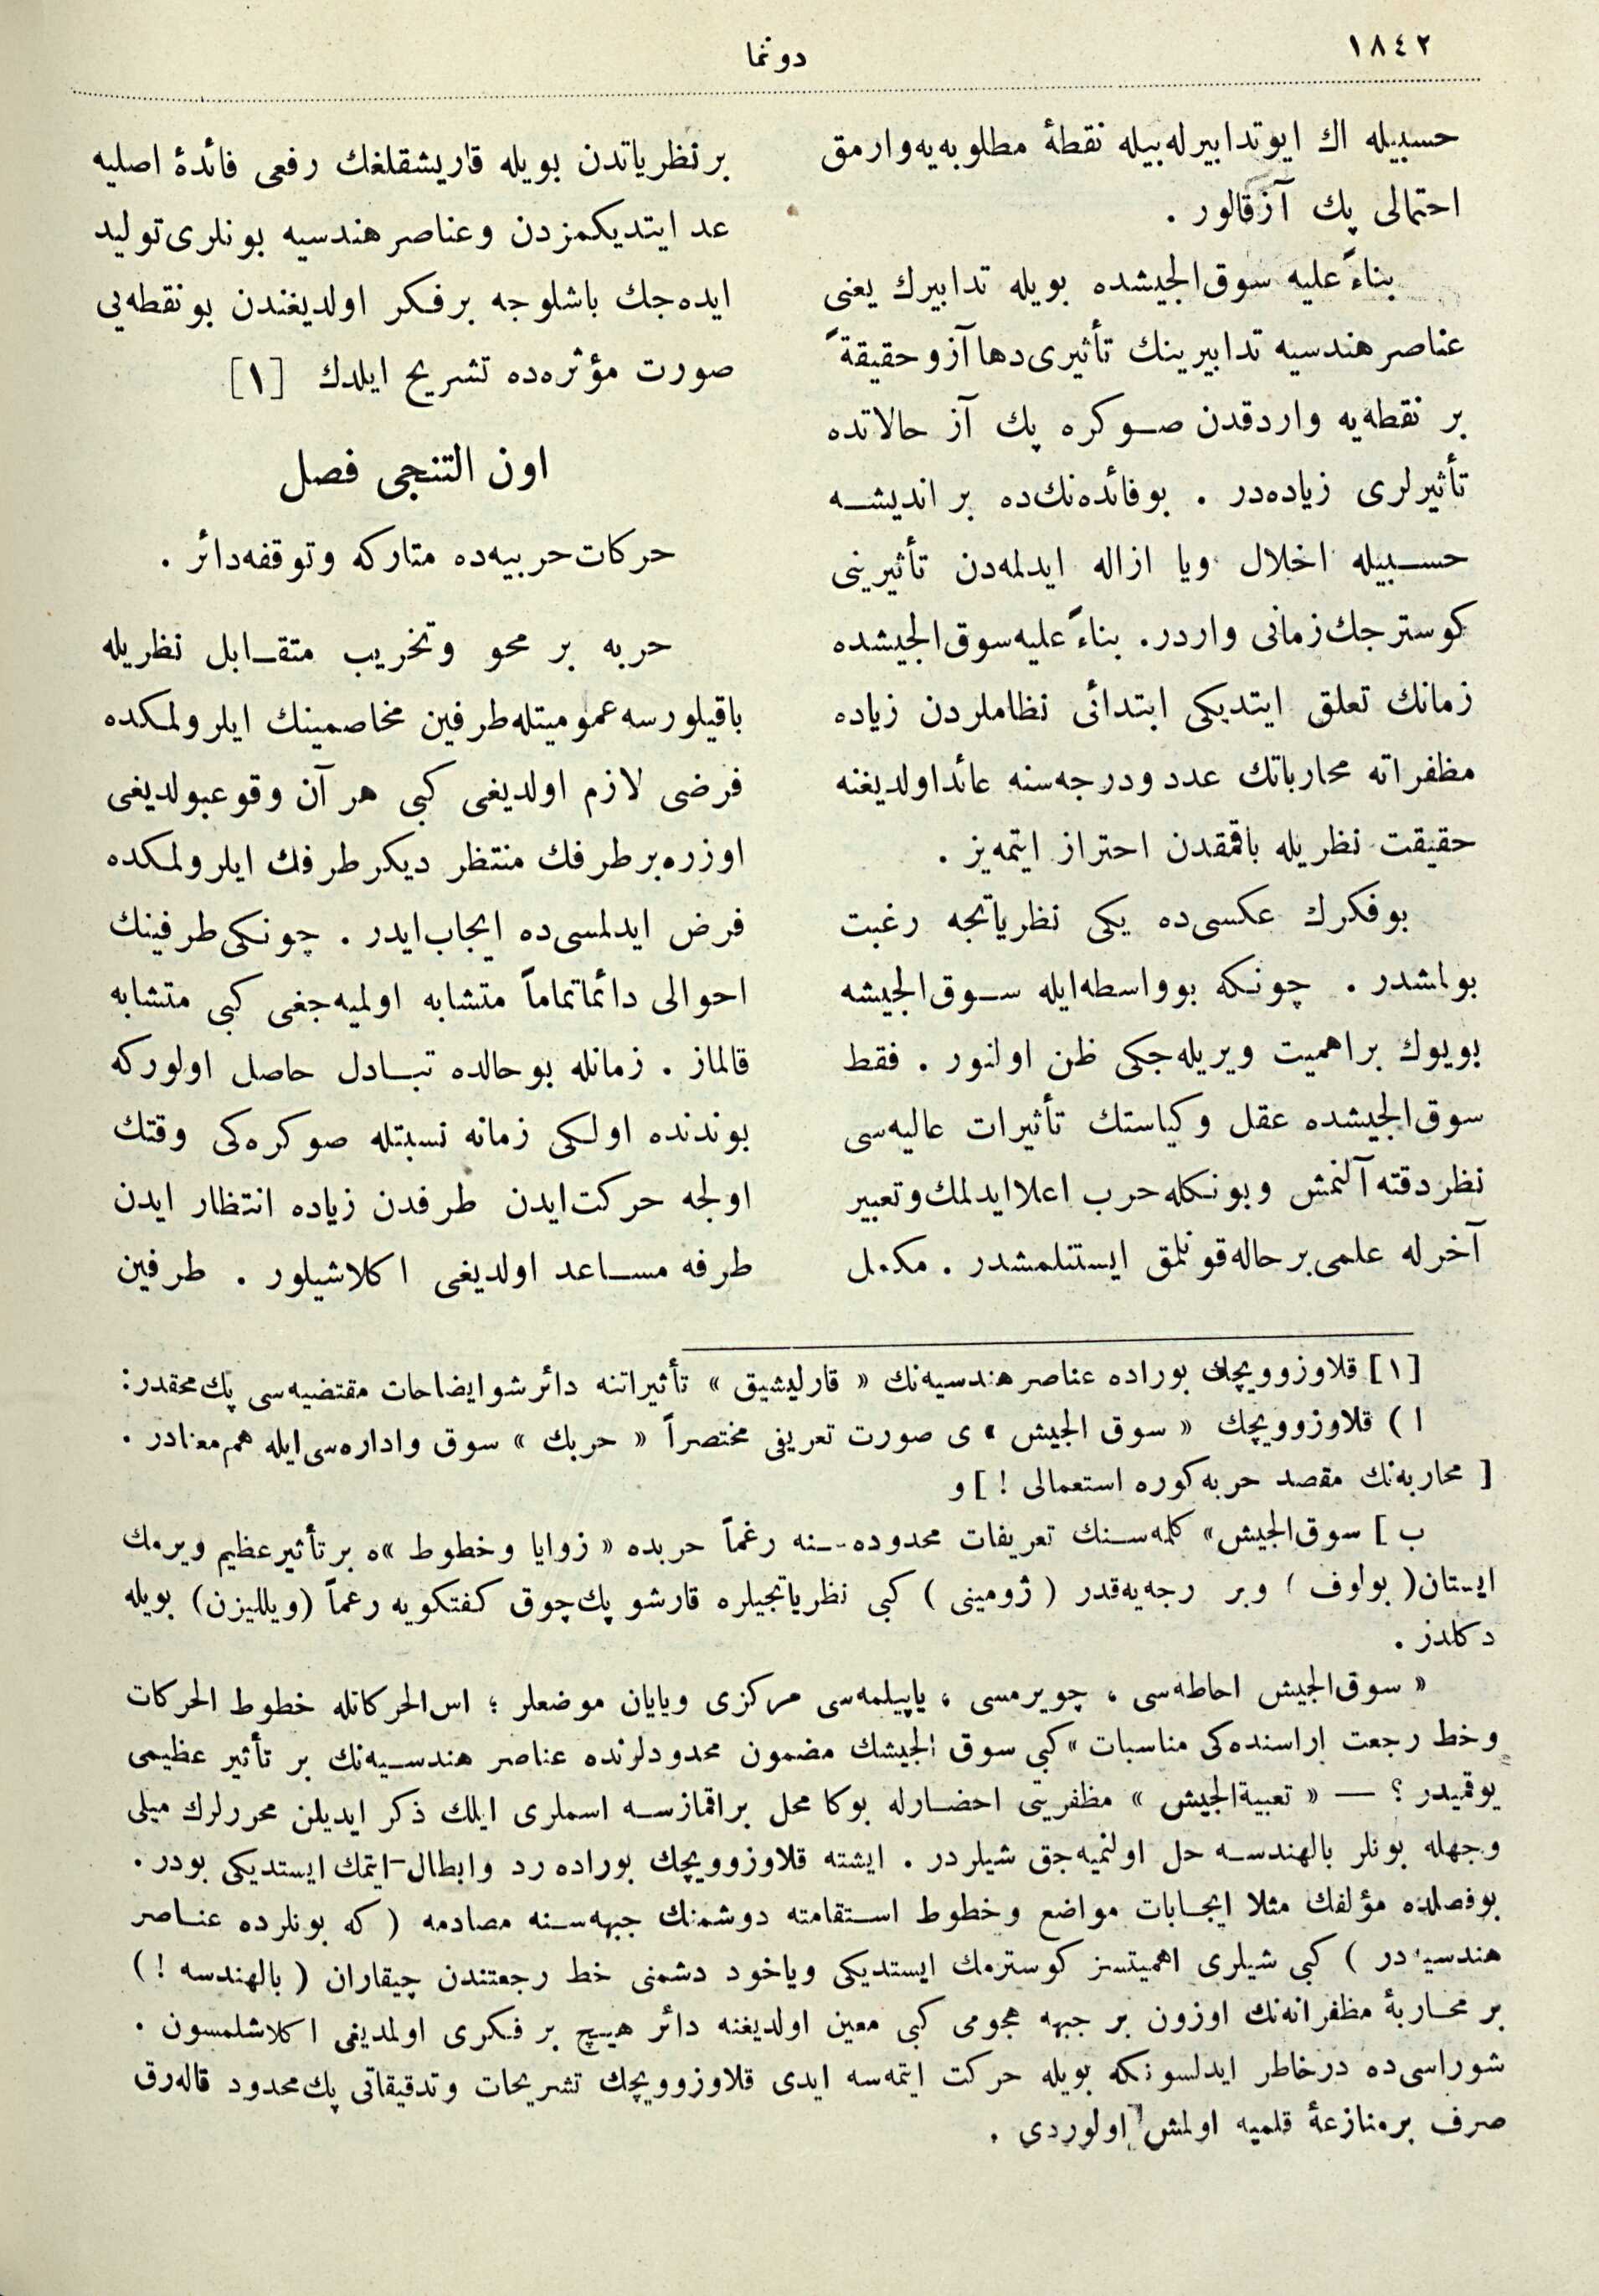 ١٨٤٢
دونما
حسبيله اك ايو تدابيرله بيله نقطۀ مطلوبه‌يه وارمق
احتمالى پك آز قالور .
بناءً عليه سوق‌الجيشده بويله تدابيرك يعنى
عناصر هندسيه تدابيرينك تأثيرى دها آز و حقيقةً
بر نقطه‌يه واردقدن صوكره پك آز حالاتده
تأثيرلرى زياده‌در . بو فائده‌نك‌ده بر انديشه
حسبيله اخلال ويا ازاله ايدلمه‌دن تأثيرينى
كوسترجك زمانى واردر. بناءً عليه سوق‌الجيشده
زمانك تعلق ايتديكى ابتدائى نظاملردن زياده
مظفراته محارباتك عدد و درجه‌سنه عائد اولديغنه
حقيقت نظريله باقمقدن احتراز ايتمه‌يز .
بو فكرك عكسى‌ده يكى نظرياتجه رغبت
بولمشدر . چونكه بو واسطه ايله سوق‌الجيشه
بويوك بر اهميت ويريله‌جكى ظن اولنور . فقط
سوق‌الجيشده عقل و كياستك تأثيرات عاليه‌سى
نظر دقته آلنمش و بونكله حرب اعلا ايدلمك و تعبير
آخرله علمى بر حاله قونلمق ايستنلمشدر . مكمل
بر نظرياتدن بويله قاريشقلغك رفعى فائدۀ اصليه
عد ايتديكمزدن و عناصر هندسيه بونلرى توليد
ايده‌جك باشلوجه بر فكر اولديغندن بو نقطه‌يى
صورت مؤثره‌ده تشريح ايلدك [١]
اون التنجى فصل
حركات حربيه‌ده متاركه و توقفه دائر .
حربه بر محو و تخريب متقابل نظريله
باقيلورسه عموميتله طرفين مخاصمينك ايلرولمكده
فرضى لازم اولديغى كبى هر آن وقوعبولديغى
اوزره بر طرفك منتظر ديكر طرفك ايلرولمكده
فرض ايدلمسى‌ده ايجاب ايدر . چونكى طرفينك
احوالى دائما تماماً متشابه اولميه‌جغى كبى متشابه
قالماز . زمانله بو حالده تبادل حاصل اولوركه
بوندنده اولكى زمانه نسبتله صوكره‌كى وقتك
اولجه حركت ايدن طرفدن زياده انتظار ايدن
طرفه مساعد اولديغى اكلاشيلور . طرفين
[١] قلاوزوويچك بوراده عناصر هندسيه‌نك « قارليشيق » تأثيراتنه دائر شو ايضاحات مقتضيه‌سى پك محقدر:
ا ) قلاوزوويچك « سوق الجيش » ى صورت تعريفى مختصراً « حربك » سوق و اداره‌سى ايله هم‌معنادر .
[ محاربه‌نك مقصد حربه كوره استعمالى ! ] و
ب ] سوق‌الجيش» كلمه‌سنك تعريفات محدوده‌سنه رغماً حربده « زوايا و خطوط »ه بر تأثير عظيم ويرمك
ايستان ( بولوف ) و بر رجه‌يه قدر ( ژومينى ) كبى نظرياتجيلره قارشو پك چوق كفتكويه رغماً (ويلليزن) بويله
دكلدر .
« سوق‌الجيش احاطه‌سى ، چويرمسى ، ياپيلمه‌سى مركزى و يايان موضعلر ؛ اس‌الحركاتله خطوط الحركات
و خط رجعت اراسنده‌كى مناسبات » كبى سوق الجيشك مضمون محدودلرنده عناصر هندسيه‌نك بر تأثير عظيمى
يوقميدر ؟ — « تعبية‌الجيش » مظفريتى احضارله بوكا محل براقمازسه اسملرى ايلك ذكر ايديلن محررلرك ميلى
وجهله بونلر بالهندسه حل اولنميه‌جق شيلردر . ايشته قلاوزوويچك بوراده رد و ابطال ايتمك ايستديكى بودر .
بو فصلده مؤلفك مثلا ايجابات مواضع و خطوط استقامته دوشمنك جبهه‌سنه مصادمه ( كه بونلرده عناصر
هندسيه‌در ) كبى شيلرى اهميتسز كوسترمك ايستديكى وياخود دشمنى خط رجعتندن چيقاران ( بالهندسه ! )
بر محاربۀ مظفرانه‌نك اوزون بر جبهه هجومى كبى معين اولديغنه دائر هيچ بر فكرى اولمديغى اكلاشلمسون .
شوراسى‌ده درخاطر ايدلسونكه بويله حركت ايتمه‌سه ايدى قلاوزوويچك تشريحات و تدقيقاتى پك محدود قاله‌رق
صرف بر منازعۀ قلميه اولمش اولوردى .